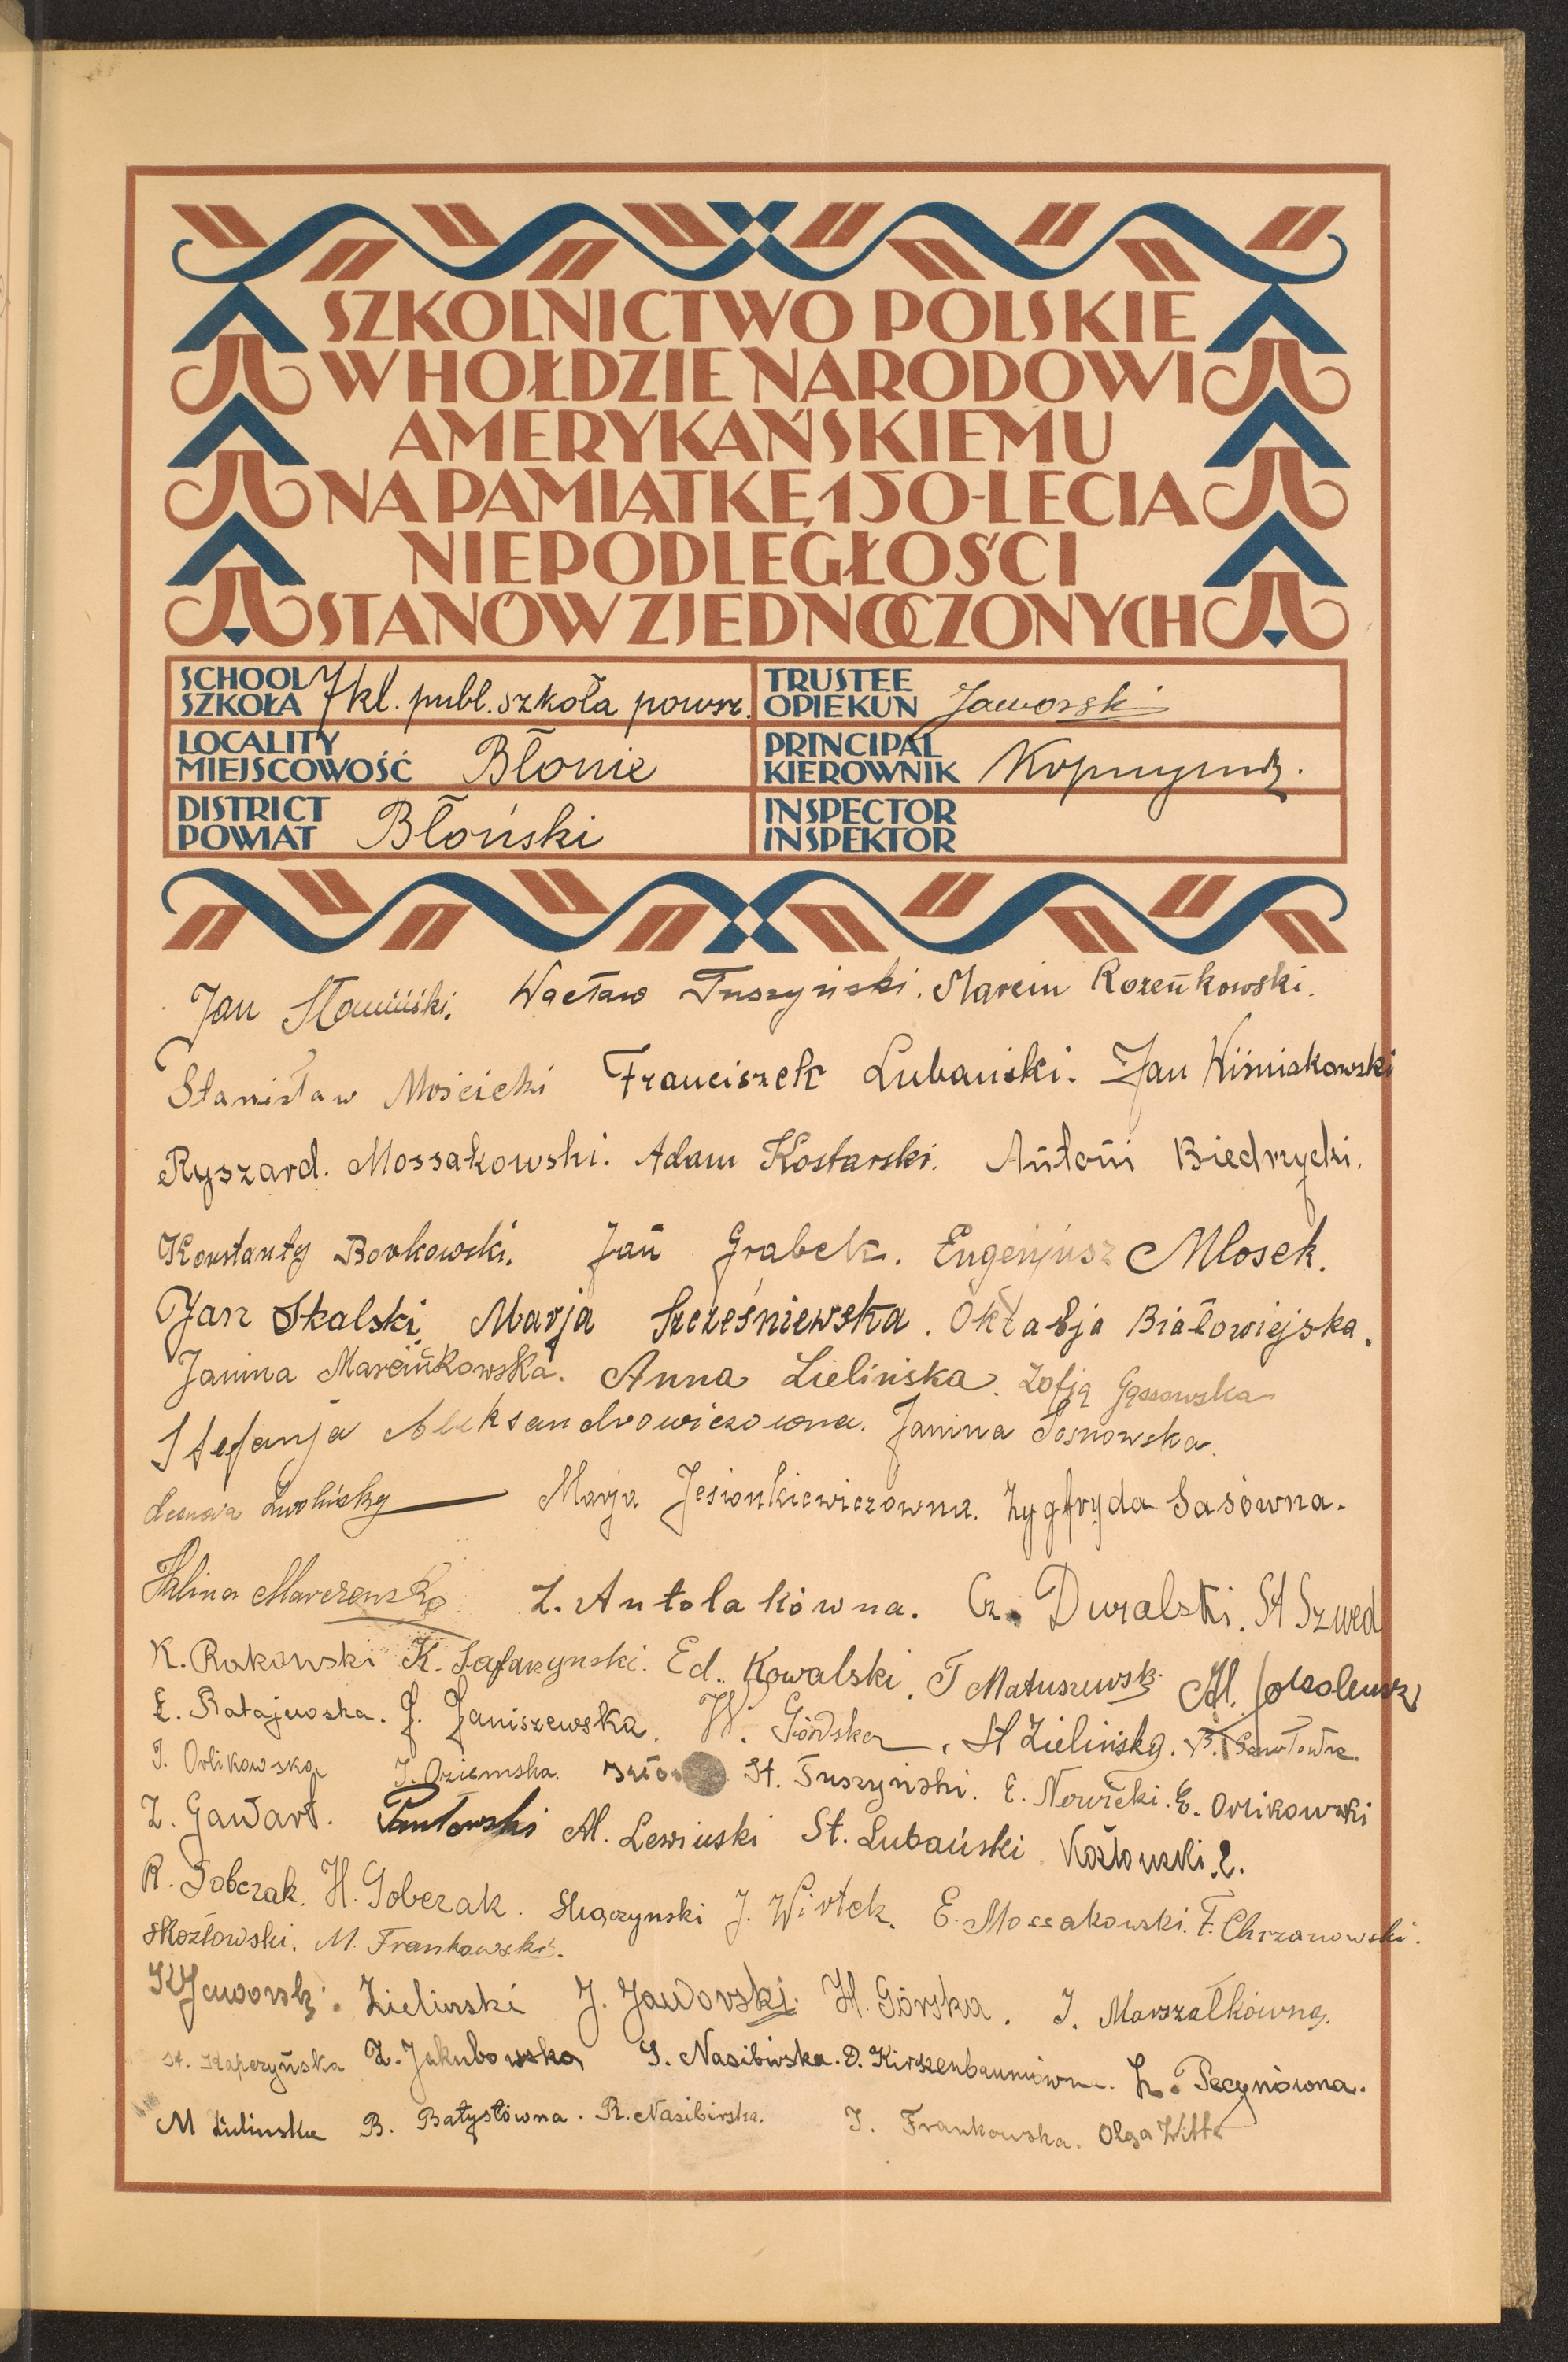 SZKOLNICTWO POLSKIE
W HOŁDZIE NARODOWI
AMERYKAŃSKIEMU
NA PAMIĄTKĘ 150-LECIA
NIEPODLEGŁOŚCI
STANÓW ZJEDNOCZONYCH
SCHOOL
SZKOŁA 7 kl. publ. szkoła powsz.
TRUSTEE
OPIEKUN Jaworski
LOCALITY
MIEJSCOWOŚĆ Błonie
PRINCIPAL
KIEROWNIK
DISTRICT
POWIAT Błoński
INSPECTOR
INSPEKTOR
Jan Sławiński. Wacław Tuszyński. Marcin Rozeńkowski.
Stanisław Mościcki Franciszek Lubański. Jan Wiśniakowski
Ryszard. Mossakowski. Adam Kostarski. Antoni Biedrzycki.
Konstanty Borkowski. Jan Grabek. Eugenjusz Mlosek.
Jan Skalski Marja Szcześniewska. Oktabja Białowiejska.
Janina Marcińkowska. Anna Zielińska. Zofja Gąssowska
Stefanja Aleksandrowiczowna. Janina Sosnowska.
Marja Jesionkiewiczowna. Zygfryda Sasówna.
Halina Z. Antolakówna. Cz. Duralski. St Szwed
K. Rakowski K. Safarzynski. Ed. Kowalski. T Matuszewski Al.
E. Ratajewska. J. Janiszewska. W. Górdska, St Zielińska.
J. Orlikowska J. Oziemska. St. Tuszyński. E. Nowicki. E. Orlikowski
Z. Gawart. Pawłowski Al. Lewinski St. Lubański. Kozłowski. E.
R. Sobczak. H. Sobczak. Skoczynski J. Wiotek. E. Mossakowski. F. Chrzanowski.
Kozłowski. M. Frankowski.
K Jaworski. Zielinski J. Jaworski H. Górska. J. Marszałkówna.
St. Kapczyńska Z. Jakubowska S. Nasibirska. D. Kirszenbaumówna. Z. Pecynówna.
M Zielinska B. Batystówna. R. Nasibirska. J. Frankowska. Olga Witte